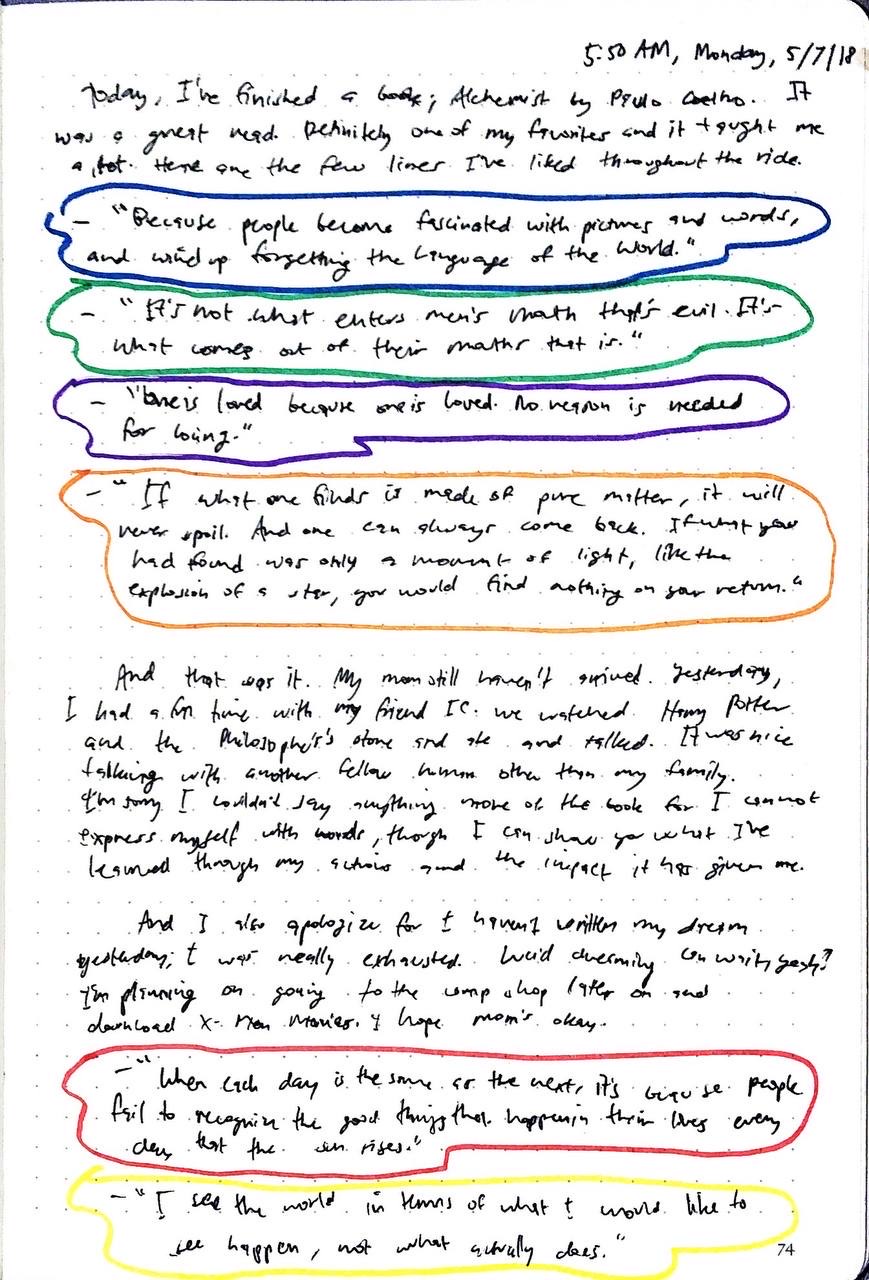 5:50 AM, Monday, 5/7/18
Today, I've finished a book; Alchemist by Paulo Coelho. It
was a great read. Definitely one of my favorites and it taught me
a lot. Here are the few lines I've liked throughout the ride.
- "Because people become fascinated with pictures and words,
and wind up forgetting the Language of the World."
- "It's not what enters men's mouth that's evil. It's
what comes out of their mouths that is."
- "One is loved because one is loved. No reason is needed
for loving."
- "If what one finds is made of pure matter, it will
never spoil. And one can always come back. If what you
had found was only a moment of light, like the
explosion of a star, you would find nothing on your return."
And that was it. My mom still haven't arrived. Yesterday,
I had a fun time with my friend IC. We watched Harry Potter
and the Philosopher's stone and ate and talked. It was nice
talking with another fellow human other than my family.
I'm sorry I couldn't say anything more of the book for I cannot
express myself with words, though I can show you what I've
learned through my actions and the impact it has given me.
And I also apologize for I haven't written my dream
yesterday; I was really exhausted. Lucid dreaming can wait, yeah?
I'm planning on going to the comp shop later on and
download X-Men Movies. I hope mom's okay.
- "When each day is the same as the next, it's because people
fail to recognize the good things that happen in their lives every
day that the sun rises."
- "I see the world in terms of what I would like to
see happen, not what actually does."
74